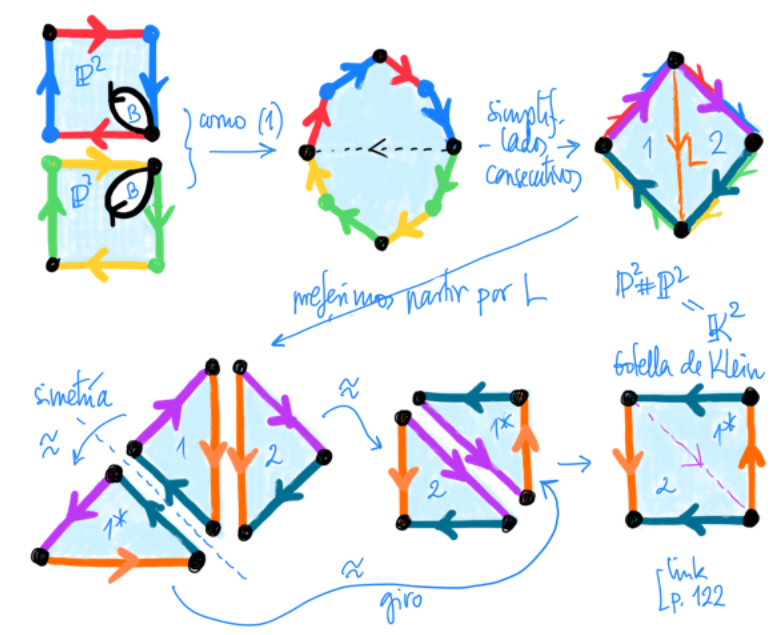 ℙ²
B
ℙ²
B
como (1)
simplif.
lados
consecutivos
1
L
2
preferimos partir por L
ℙ²#ℙ²
=
𝕂²
botella de Klein
simetría
≈
1
2
1*
≈
1*
2
1*
2
≈
giro
link
p. 122